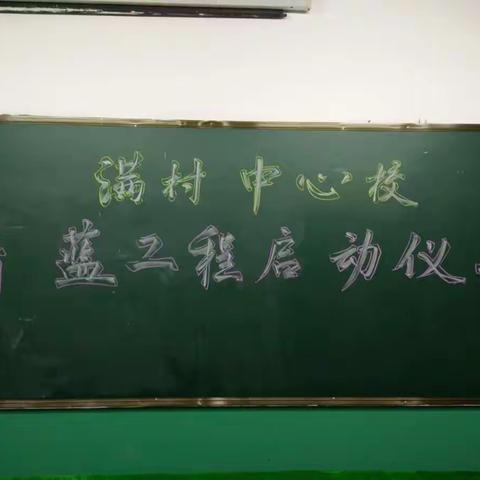 满村中心校
蓝工程启动仪